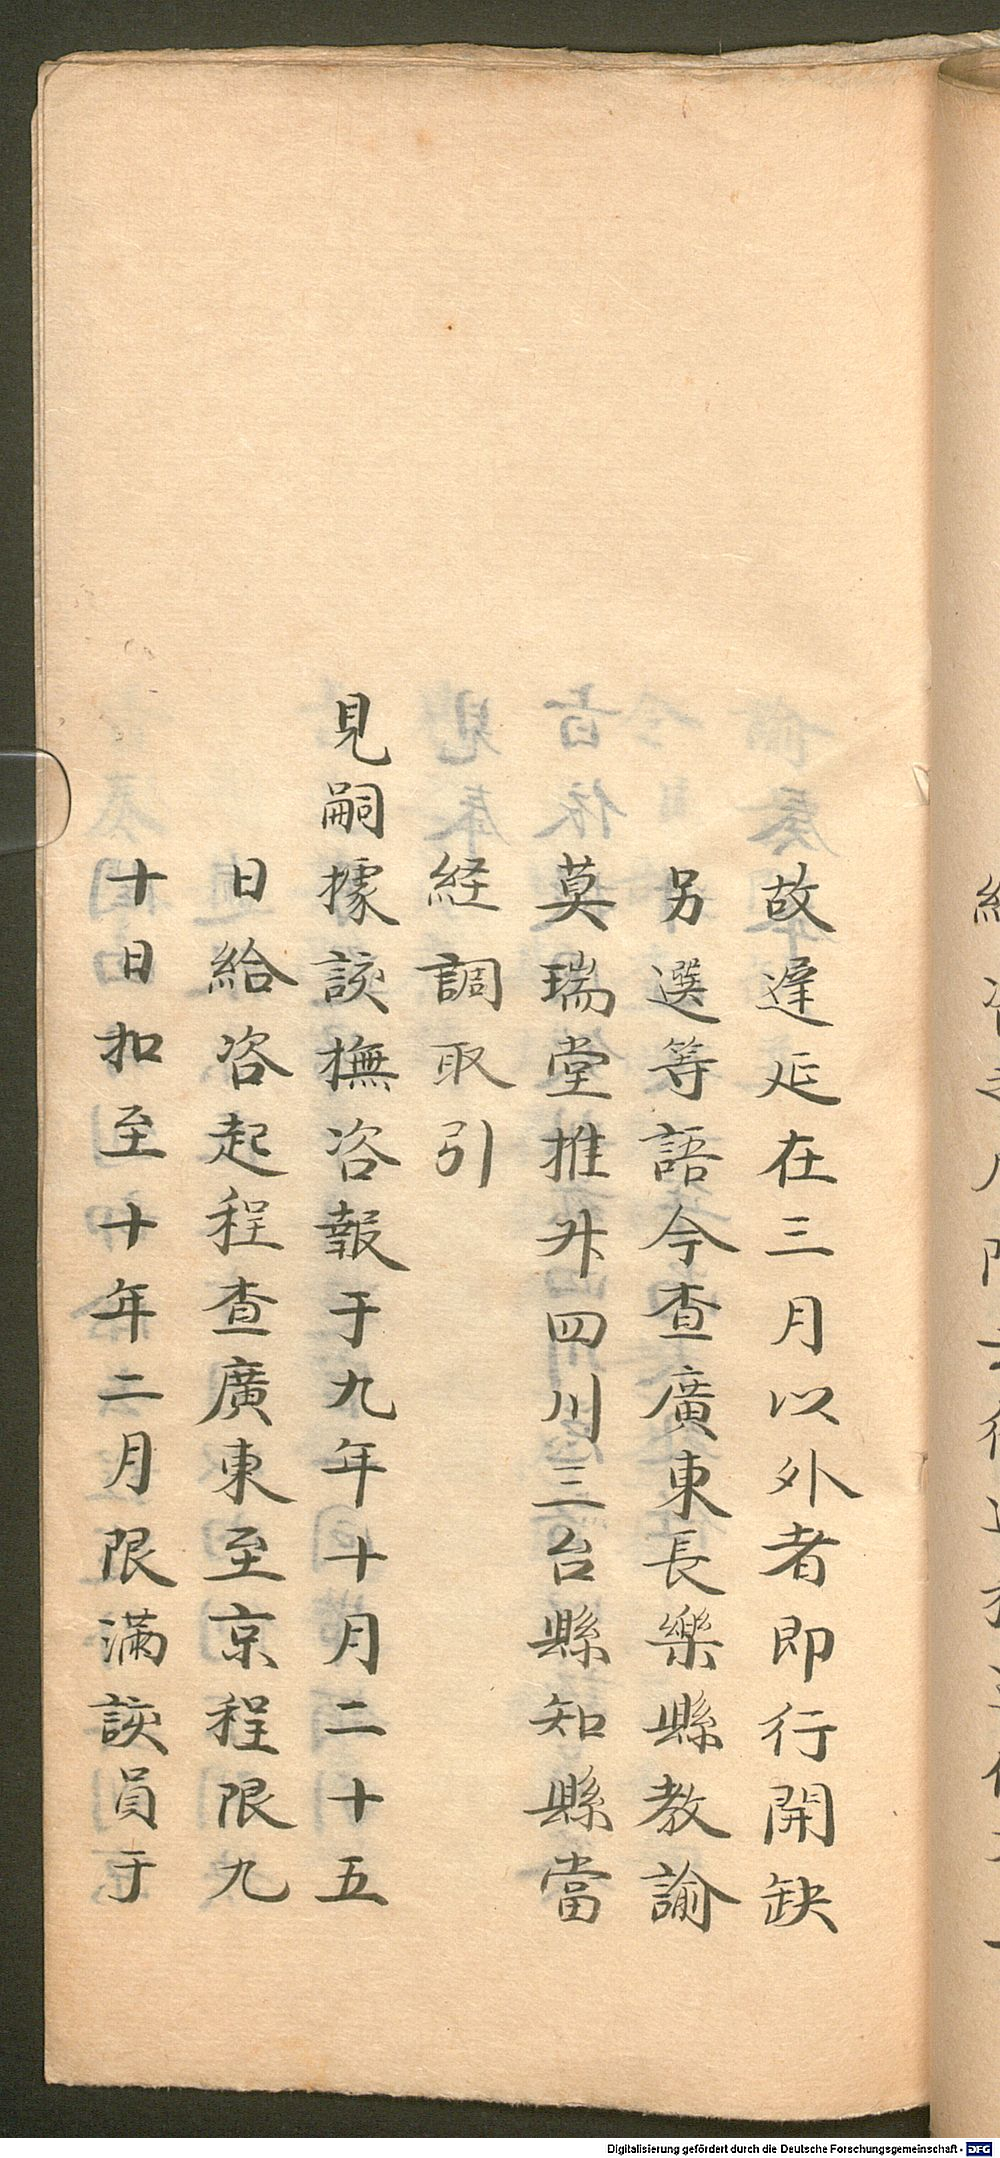 故遲延在三月以外者即行開缺
另選等語今查廣東長樂縣教諭
莫瑞堂推升四川三台縣知縣當
経調取引
見嗣據該撫咨報于九年十月二十五
日給咨起程查廣東至京程限九
十日扣至十年二月限滿該員于
Digitalisierung gefördert durch die Deutsche Forschungsgemeinschaft - DFG